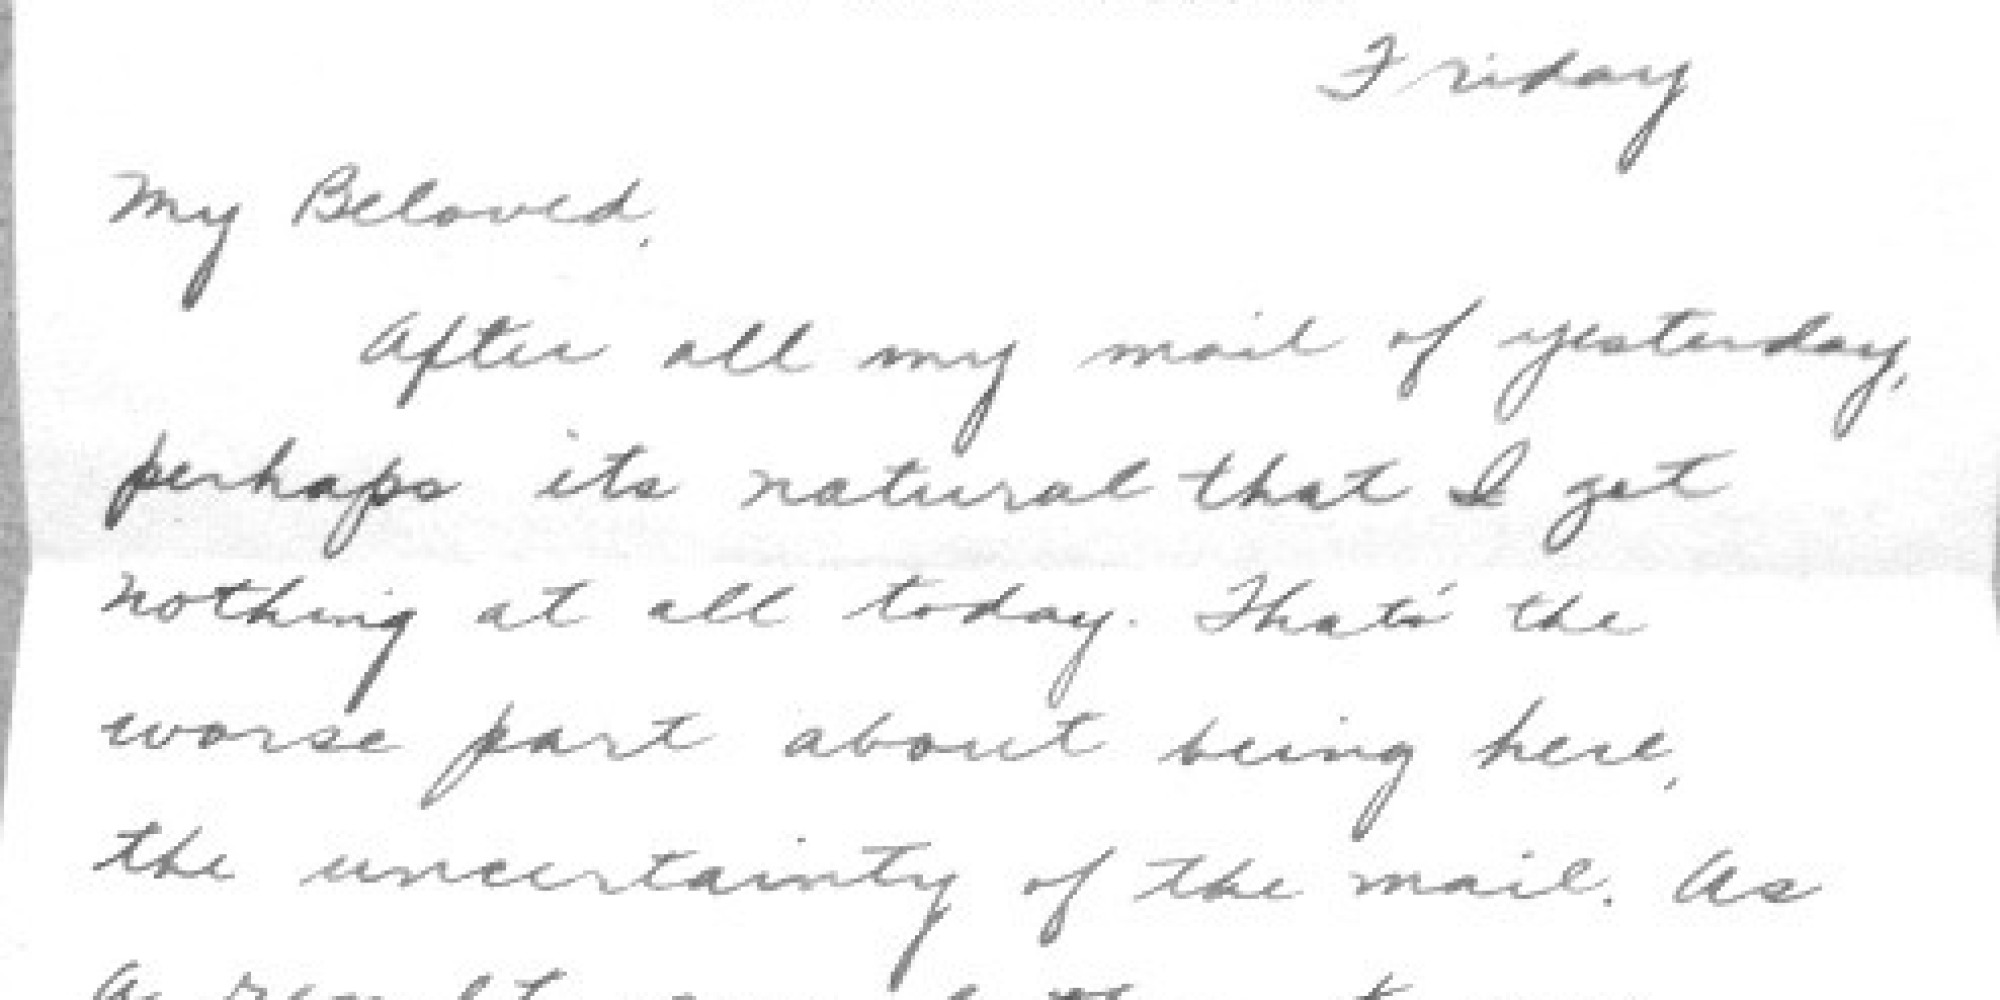 Friday
My Beloved,
After all my mail of yesterday,
perhaps its natural that I got
nothing at all today. That's the
worse part about being here,
the uncertainty of the mail. As
a result